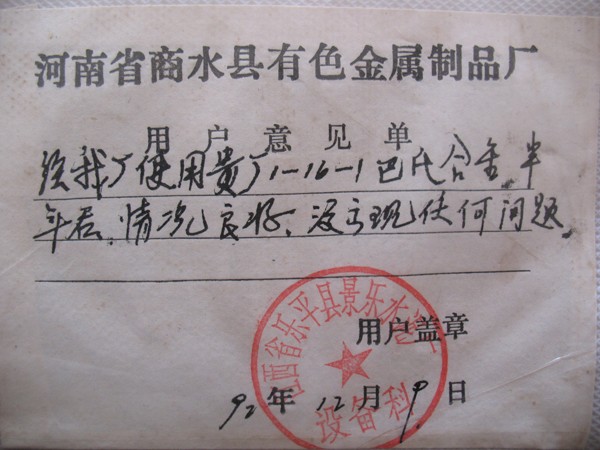 河南省商水县有色金属制品厂
用户意见单
经我厂使用贵厂1-16-1巴氏合金,半
年后,情况良好,没现任何问题。
用户盖章
92年12月9日
江西省乐平县景乐水
设备科